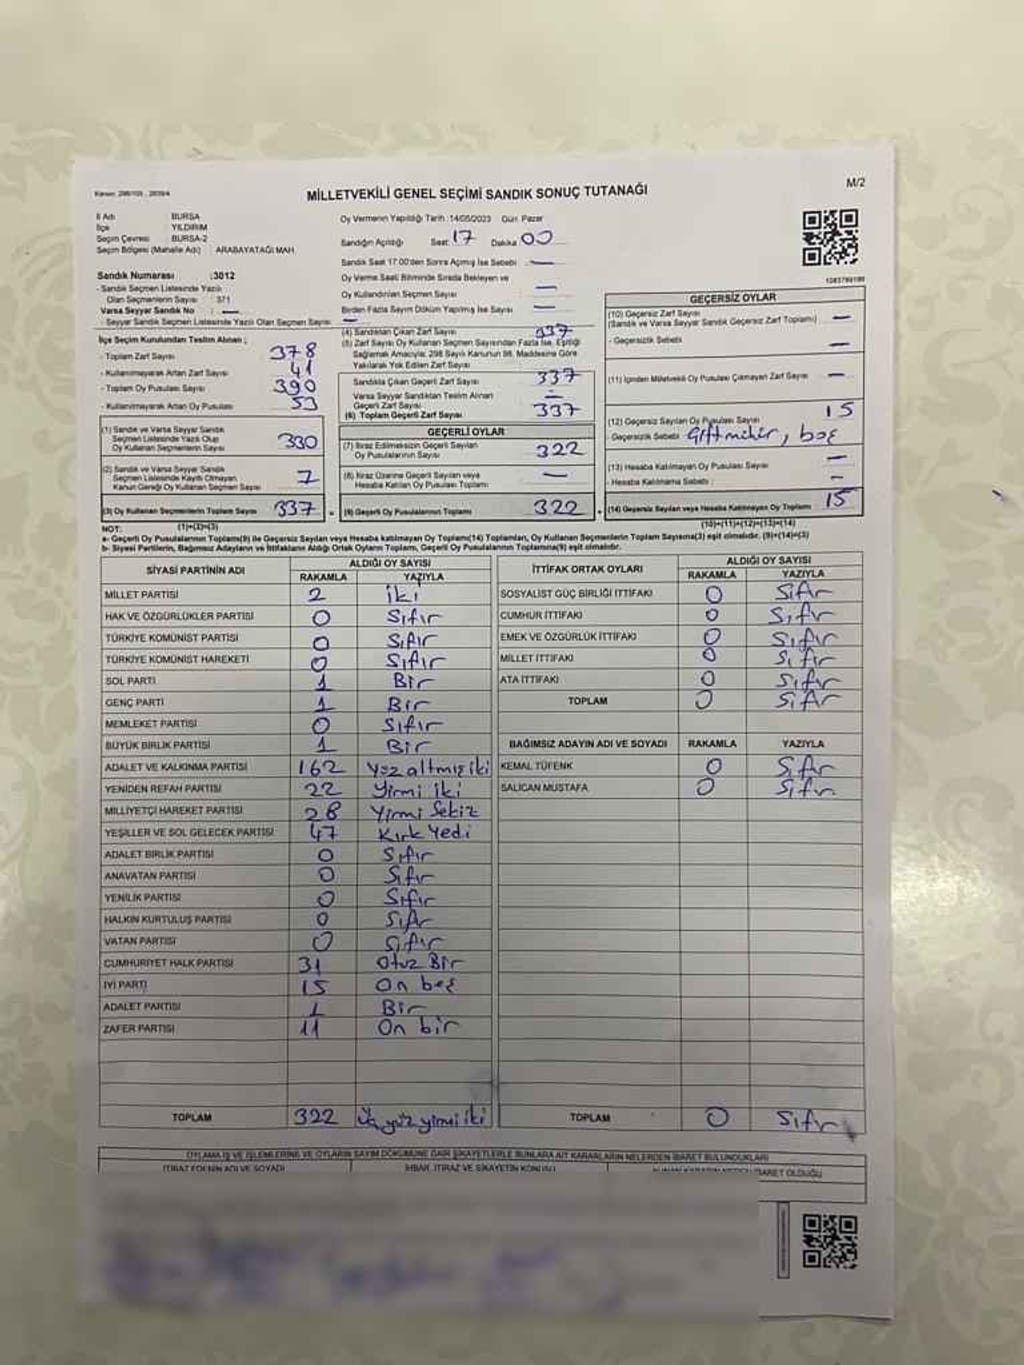 Kanun: 298/105 , 2839/4
MİLLETVEKİLİ GENEL SEÇİMİ SANDIK SONUÇ TUTANAĞI
M/2
İl Adı BURSA
İlçe YILDIRIM
Seçim Çevresi BURSA-2
Seçim Bölgesi (Mahalle Adı) ARABAYATAĞI MAH.
Sandık Numarası :3012
- Sandık Seçmen Listesinde Yazılı
Olan Seçmenlerin Sayısı : 371
Varsa Seyyar Sandık No : —
- Seyyar Sandık Seçmen Listesinde Yazılı Olan Seçmen Sayısı : —
İlçe Seçim Kurulundan Teslim Alınan ;
- Toplam Zarf Sayısı 378
- Kullanılmayarak Artan Zarf Sayısı 41
- Toplam Oy Pusulası Sayısı 390
- Kullanılmayarak Artan Oy Pusulası 53
(1) Sandık ve Varsa Seyyar Sandık
Seçmen Listesinde Yazılı Olup
Oy Kullanan Seçmenlerin Sayısı 330
(2) Sandık ve Varsa Seyyar Sandık
Seçmen Listesinde Kayıtlı Olmayan,
Kanun Gereği Oy Kullanan Seçmen Sayısı 7
(3) Oy Kullanan Seçmenlerin Toplam Sayısı 337 =
(1)+(2)=(3)
Oy Vermenin Yapıldığı Tarih :14/05/2023 Gün: Pazar
Sandığın Açıldığı Saat: 17 Dakika 00
Sandık Saat 17:00'den Sonra Açılmış İse Sebebi : —
Oy Verme Saati Bitiminde Sırada Bekleyen ve
Oy Kullandırılan Seçmen Sayısı —
Birden Fazla Sayım Döküm Yapılmış İse Sayısı —
(4) Sandıktan Çıkan Zarf Sayısı 337
(5) Zarf Sayısı Oy Kullanan Seçmen Sayısından Fazla İse, Eşitliği
Sağlamak Amacıyla; 298 Sayılı Kanunun 98. Maddesine Göre
Yakılarak Yok Edilen Zarf Sayısı —
Sandıkta Çıkan Geçerli Zarf Sayısı 337
Varsa Seyyar Sandıktan Teslim Alınan
Geçerli Zarf Sayısı —
(6) Toplam Geçerli Zarf Sayısı 337
GEÇERLİ OYLAR
(7) İtiraz Edilmeksizin Geçerli Sayılan
Oy Pusulasının Sayısı 322
(8) İtiraz Üzerine Geçerli Sayılan veya
Hesaba Katılan Oy Pusulası Toplamı —
(9) Geçerli Oy Pusulalarının Toplamı 322 +
1083769186
GEÇERSİZ OYLAR
(10) Geçersiz Zarf Sayısı
(Sandık ve Varsa Seyyar Sandık Geçersiz Zarf Toplamı) —
- Geçersizlik Sebebi —
(11) İçinden Milletvekili Oy Pusulası Çıkmayan Zarf Sayısı —
(12) Geçersiz Sayılan Oy Pusulası Sayısı 15
- Geçersizlik Sebebi Çift mühür, boş
(13) Hesaba Katılmayan Oy Pusulası Sayısı —
- Hesaba Katılmama Sebebi : —
(14) Geçersiz Sayılan veya Hesaba Katılmayan Oy Toplamı 15
(10)+(11)+(12)+(13)=(14)
NOT:
a- Geçerli Oy Pusulalarının Toplamı(9) ile Geçersiz Sayılan veya Hesaba Katılmayan Oy Toplamı(14) Toplamları, Oy Kullanan Seçmenlerin Toplam Sayısına(3) eşit olmalıdır. (9)+(14)=(3)
b- Siyasi Partilerin, Bağımsız Adayların ve İttifakların Aldığı Ortak Oyların Toplamı, Geçerli Oy Pusulalarının Toplamına(9) eşit olmalıdır.
SİYASİ PARTİNİN ADI ALDIĞI OY SAYISI
RAKAMLA YAZIYLA
MİLLET PARTİSİ 2 iki
HAK VE ÖZGÜRLÜKLER PARTİSİ 0 Sıfır
TÜRKİYE KOMÜNİST PARTİSİ 0 Sıfır
TÜRKİYE KOMÜNİST HAREKETİ 0 Sıfır
SOL PARTİ 1 Bir
GENÇ PARTİ 1 Bir
MEMLEKET PARTİSİ 0 Sıfır
BÜYÜK BİRLİK PARTİSİ 1 Bir
ADALET VE KALKINMA PARTİSİ 162 Yüz altmış iki
YENİDEN REFAH PARTİSİ 22 Yirmi iki
MİLLİYETÇİ HAREKET PARTİSİ 28 Yirmi Sekiz
YEŞİLLER VE SOL GELECEK PARTİSİ 47 Kırk Yedi
ADALET BİRLİK PARTİSİ 0 Sıfır
ANAVATAN PARTİSİ 0 Sıfır
YENİLİK PARTİSİ 0 Sıfır
HALKIN KURTULUŞ PARTİSİ 0 Sıfır
VATAN PARTİSİ 0 Sıfır
CUMHURİYET HALK PARTİSİ 31 Otuz Bir
İYİ PARTİ 15 On beş
ADALET PARTİSİ 1 Bir
ZAFER PARTİSİ 11 On bir
TOPLAM 322 Üç yüz yirmi iki
İTTİFAK ORTAK OYLARI ALDIĞI OY SAYISI
RAKAMLA YAZIYLA
SOSYALİST GÜÇ BİRLİĞİ İTTİFAKI 0 Sıfır
CUMHUR İTTİFAKI 0 Sıfır
EMEK VE ÖZGÜRLÜK İTTİFAKI 0 Sıfır
MİLLET İTTİFAKI 0 Sıfır
ATA İTTİFAKI 0 Sıfır
TOPLAM 0 Sıfır
BAĞIMSIZ ADAYIN ADI VE SOYADI RAKAMLA YAZIYLA
KEMAL TÜFENK 0 Sıfır
SALİCAN MUSTAFA 0 Sıfır
TOPLAM 0 Sıfır
OYLAMA İŞ VE İŞLEMLERİNE VE OYLARIN SAYIM DÖKÜMÜNE DAİR ŞİKAYETLERLE BUNLARA AİT KARARLARIN NELERDEN İBARET BULUNDUKLARI
İTİRAZ EDENİN ADI VE SOYADI İHBAR, İTİRAZ VE ŞİKAYETİN KONUSU ALINAN KARARIN NEDEN İBARET OLDUĞU